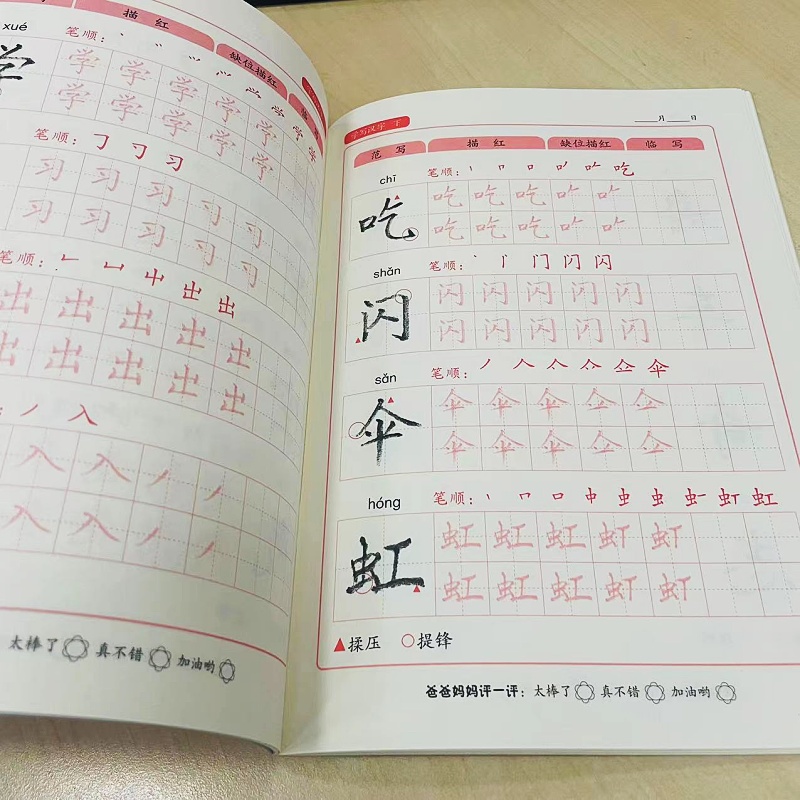 xué
描 红
缺位描红
学
笔顺：
学 学 学 学 学 学
学 学 学 学 学
笔顺：
习
习 习 习
习 习 习
笔顺：
出 出
出 出 出 出 出
出 出 出 出 出
入
入 入
入 入
太棒了 真不错 加油哟
月 日
学写汉字 下
范 写 描 红 缺位描红 临 写
chī
笔顺：
吃
吃
吃 吃 吃
吃 吃 吃
shǎn
笔顺：
门 闪 闪
闪
闪 闪 闪 闪 闪
闪 闪 闪 闪 闪
sǎn
笔顺：
人 伞
伞
伞 伞 伞
伞 伞 伞
hóng
笔顺：
口 虫 虹
虹
虹 虹 虹
虹 虹 虹
▲揉压 ○提锋
爸爸妈妈评一评：太棒了 真不错 加油哟